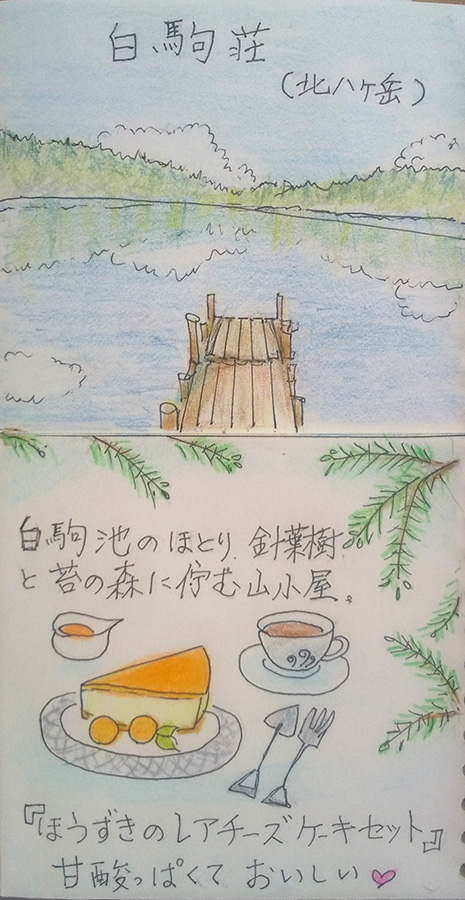 白駒荘
(北八ヶ岳)
白駒池のほとり、針葉樹
と苔の森に佇む山小屋。
『ほうずきのレアチーズケーキセット』
甘酸っぱくて おいしい♥